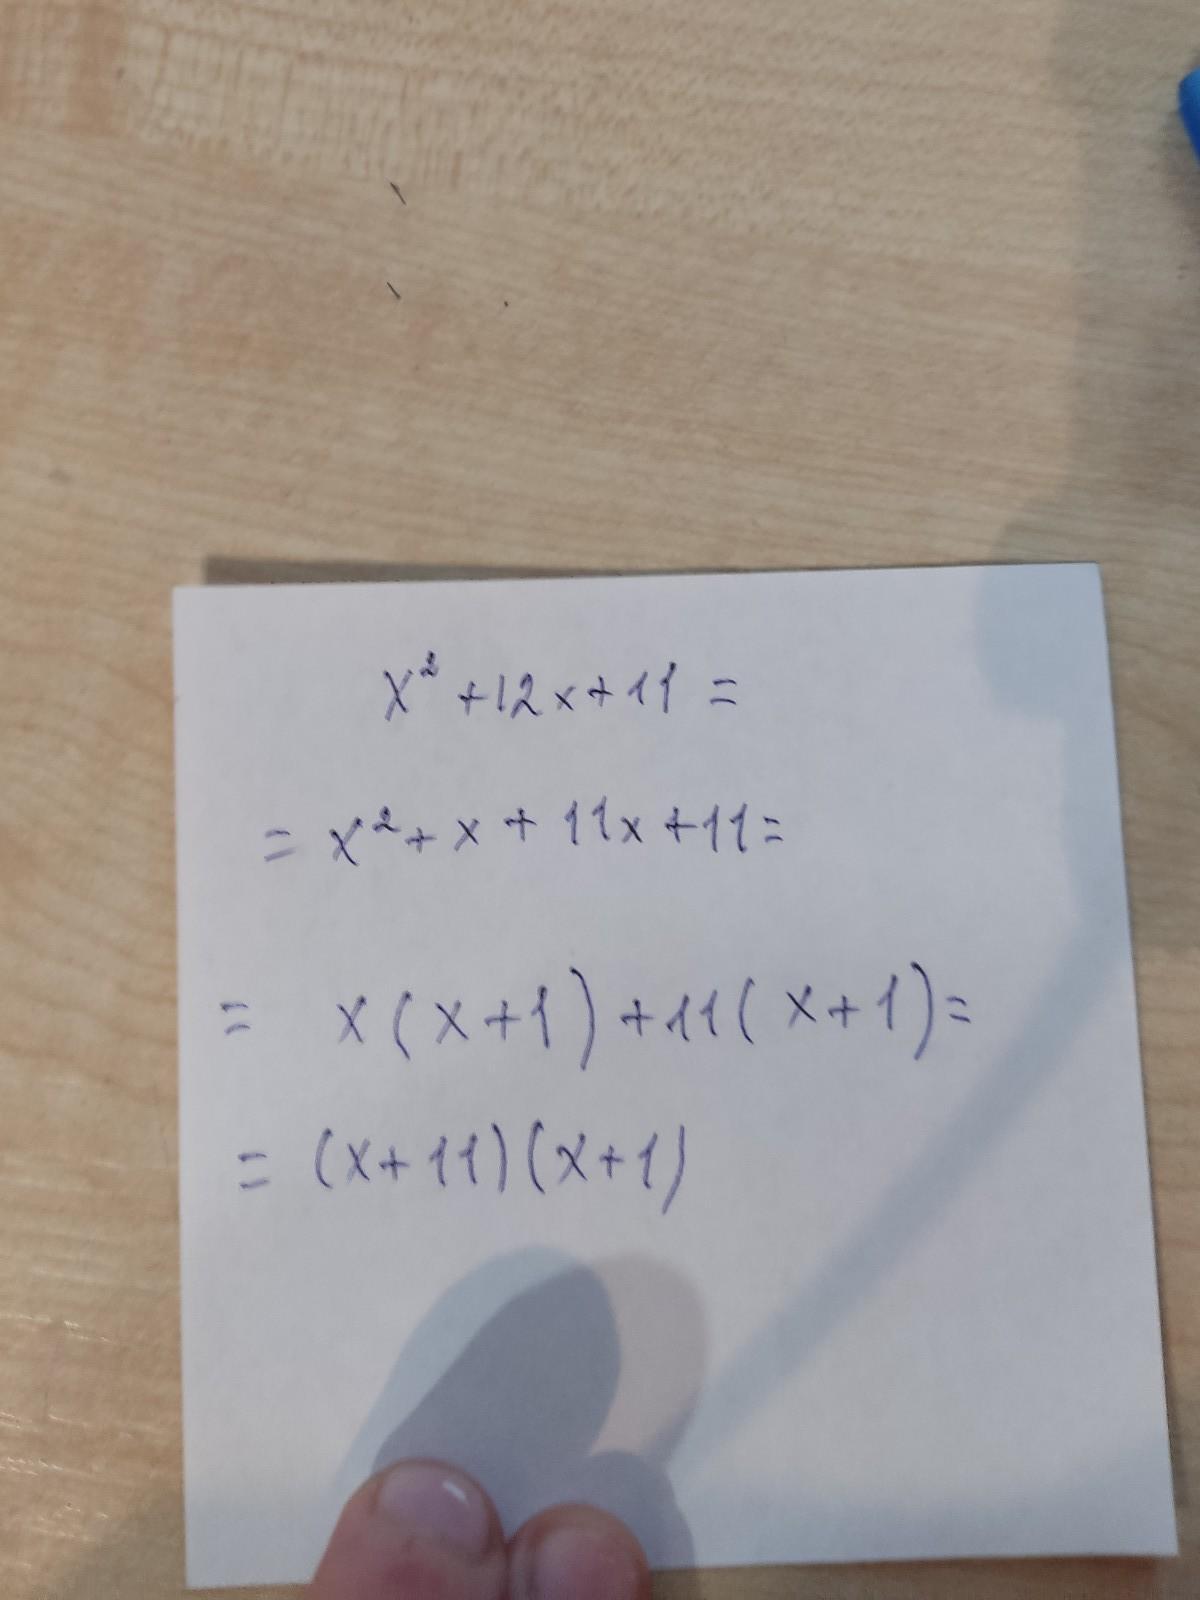 x² + 12x + 11 =
= x² + x + 11x + 11 =
= x(x+1) + 11(x+1) =
= (x+11)(x+1)